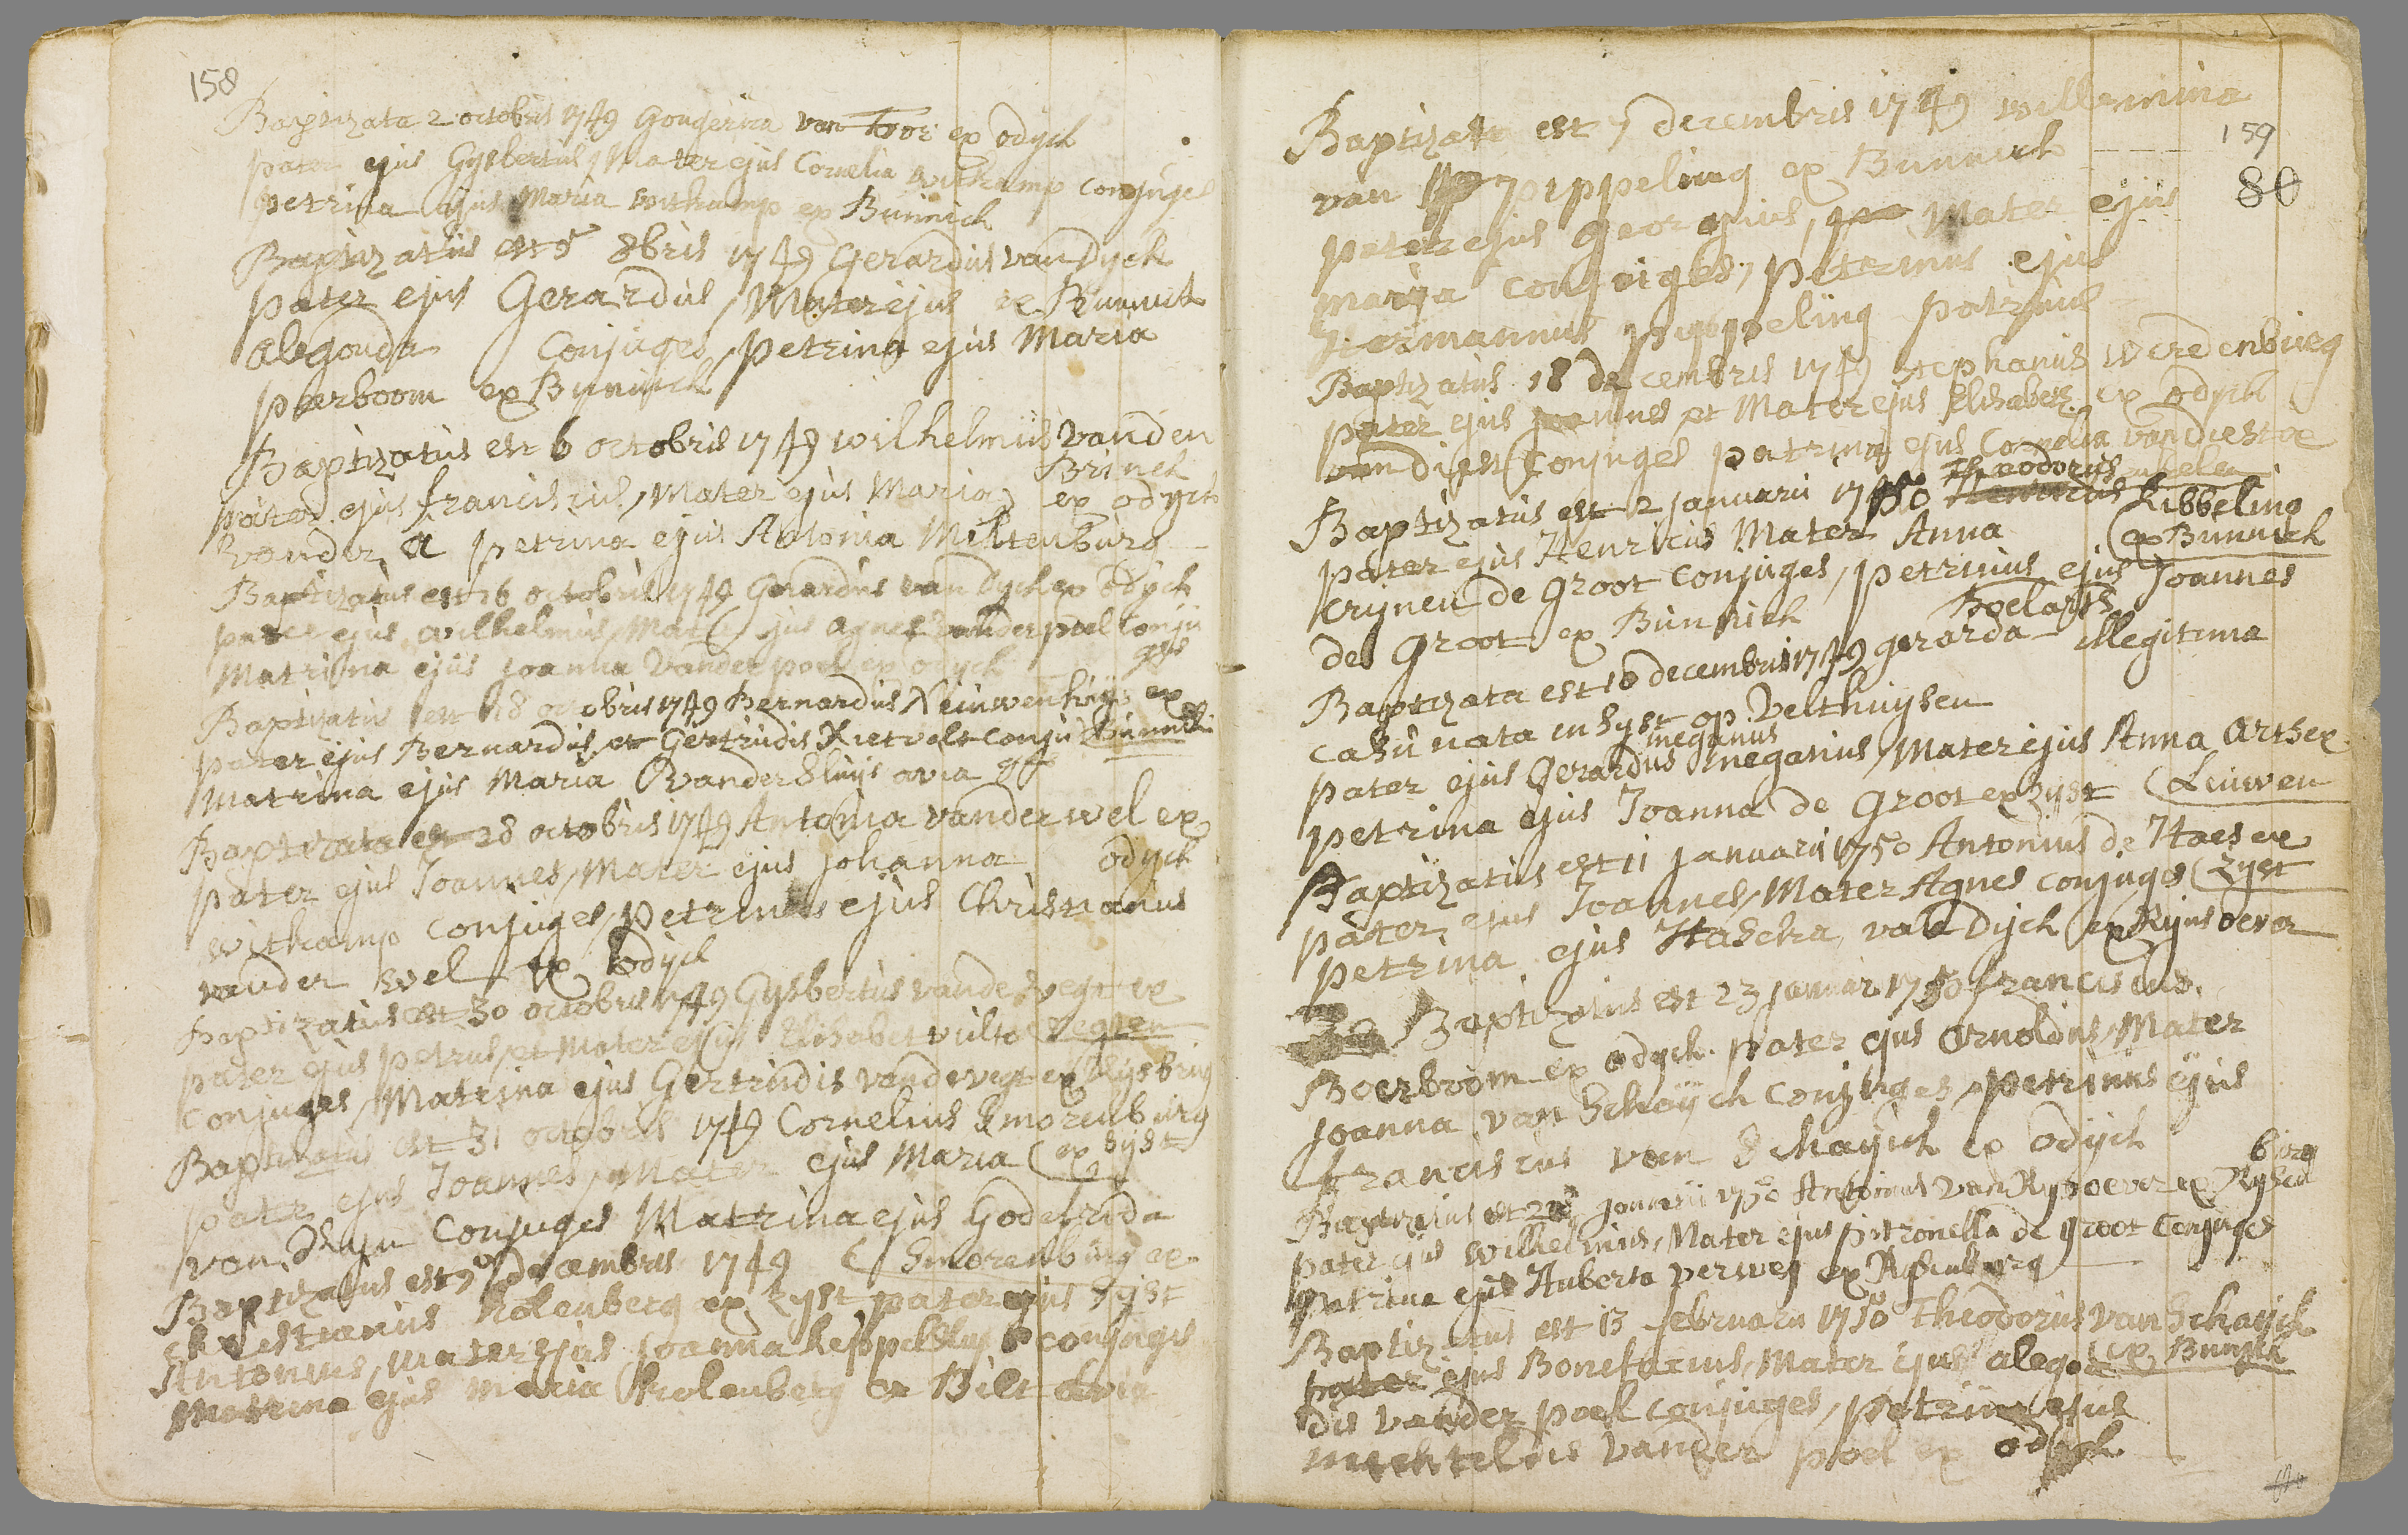 158
Baptizata 2 octobris 1749 Gougerina van Toor ex odych
pater ejus Gysbertus, Mater ejus Cornelia withamp conjuges
petrina ejus Maria withamp ex Bunnich
Baptizatus est 5 8bris 1749 Gerardus van Dych
pater ejus Gerardus, Mater ejus ex Bunnich
alegonda conjuges, petrina ejus Maria
peerboom ex Bunnich
Baptizatus est 6 octobris 1749 wilhelmus vanden
Brinch
pater ejus franciscus, Mater ejus Maria ex odych
vander a petrina ejus Antonia Miltenburg
Baptizatus est 16 octobris 1749 Gerardus van Dych ex odych
pater ejus wilhelmus, Mater ejus agnes vander poel conju
ges
Matrina ejus joanna vander poel ex odych
Baptizatus est 18 octobris 1749 Bernardus Neuwenhuys ex
pater ejus Bernardus et Gertrudis Rietvelt conju Bunnich
Matrina ejus Maria vander Sluijs avia ges
Baptizata est 28 octobris 1749 Antonia vander wel ex
pater ejus Joannes, Mater ejus johanna odych
withamp conjuges, petrinus ejus Christianus
vander wel ex odych
Baptizatus est 30 octobris 1749 Gysbertus vande vegt ex
pater ejus petrus, et Mater ejus Elisabet vulto vegten
conjuges, Matrina ejus Gertrudis vande vegt ex Rysbrug
Baptizatus est 31 octobris 1749 Cornelius Smorenburg
pater ejus Joannes, Mater ejus Maria (ex Syst
van Rhyn conjuges Matrina ejus Godefrida
Baptizatus est 7 decembris 1749 (Smorenburg ex
christianus holenberg ex zyst pater ejus Syst
Antonius, mater ejus joanna keppel conjuges
Matrina ejus maria holenberg ex Bilt avia
Baptizata est 7 decembris 1749 willemina
159
van pippeling ex Bunnich
80
pater ejus georgius, Mater ejus
marya conjuges, petrinus ejus
Hermannus pippeling patruus
Baptizatus 18 decembris 1749 stephanus werdenburg
pater ejus joannes, et Mater ejus Elisabeth ex odych
van diest conjuges patrina ejus Cornelia van diest ex
Theodorus
Baptizatus est 2 januarii 1750 Henricus kibbeling
pater ejus Henricus Mater Anna (ex Bunnich
crynen de groot conjuges, petrinus ejus Joannes
de groot ex Bunnich Roelasts
Baptizata est 10 decembris 1749 gerarda illegitima
casu nata in Syst op Velthuysen
meganus
pater ejus Gerardus meganus, Mater ejus Anna arts ex
petrina ejus Joanna de Groot ex zyst (Leuwen
Baptizatus est 11 januarii 1750 Antonius de Haes ex
pater ejus Joannes, Mater Agnes conjuges (zyst
petrina ejus Hascha van Dych ex Rynsoever
Baptizatus est 23 januar 1750 franciscus
Boerboom ex odych. pater ejus arnoldus, Mater
joanna van Schaych conjuges, petrinus ejus
franciscus van Schayck ex odych
borg
Baptizatus est 28 januarii 1750 Antonius van Rynsoever ex Rysen
pater ejus wilhelmus, Mater ejus petronella de groot conjuges
petrina ejus Huberta perweg ex Rysenburg
Baptizatus est 13 februarii 1750 Theodorus van Schayck
pater ejus Bonefacius, Mater ejus alegon (ex Bunnich
dis vander poel conjuges, petrina ejus
mechteldis vander poel ex odych